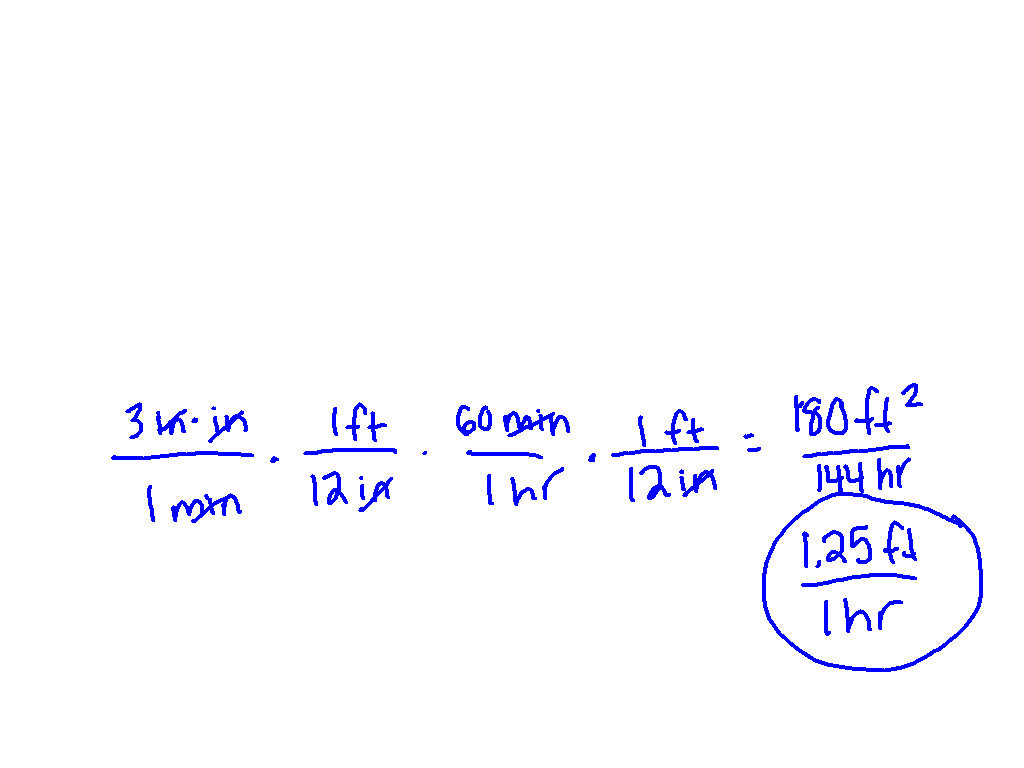 3 in · in / 1 min · 1 ft / 12 in · 60 min / 1 hr · 1 ft / 12 in = 180 ft² / 144 hr
1.25 ft / 1 hr